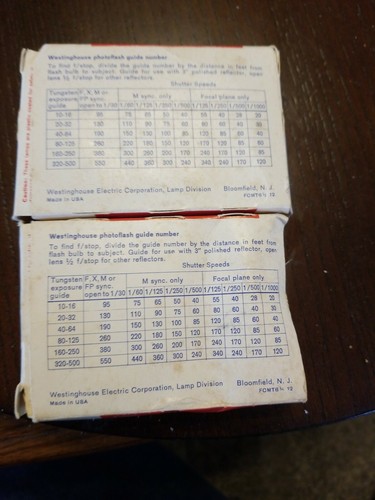 Westinghouse photoflash guide number
To find f/stop, divide the guide number by the distance in feet from
flash bulb to subject. Guide for use with 3" polished reflector, open
lens ½ f/stop for other reflectors.
Shutter Speeds
Tungsten F, X, M or M sync. only Focal plane only
exposure FP sync.
guide open to 1/30 1/60 1/125 1/250 1/500 1/125 1/250 1/500 1/1000
10-16 95 75 65 50 40 55 40 28 20
20-32 130 110 90 75 60 80 60 40 30
40-64 190 150 130 100 85 120 85 60 40
80-125 260 220 180 150 120 170 120 85 60
160-250 380 300 260 200 170 240 170 120 85
320-500 550 440 360 300 240 340 240 170 120
Westinghouse Electric Corporation, Lamp Division Bloomfield, N. J.
Made in USA
Westinghouse photoflash guide number
To find f/stop, divide the guide number by the distance in feet from
flash bulb to subject. Guide for use with 3" polished reflector, open
lens ½ f/stop for other reflectors.
Shutter Speeds
Tungsten F, X, M or M sync. only Focal plane only
exposure FP sync.
guide open to 1/30 1/60 1/125 1/250 1/500 1/125 1/250 1/500 1/1000
10-16 95 75 65 50 40 55 40 28 20
20-32 130 110 90 75 60 80 60 40 30
40-64 190 150 130 100 85 120 85 60 40
80-125 260 220 180 150 120 170 120 85 60
160-250 380 300 260 200 170 240 170 120 85
320-500 550 440 360 300 240 340 240 170 120
Westinghouse Electric Corporation, Lamp Division Bloomfield, N. J.
Made in USA